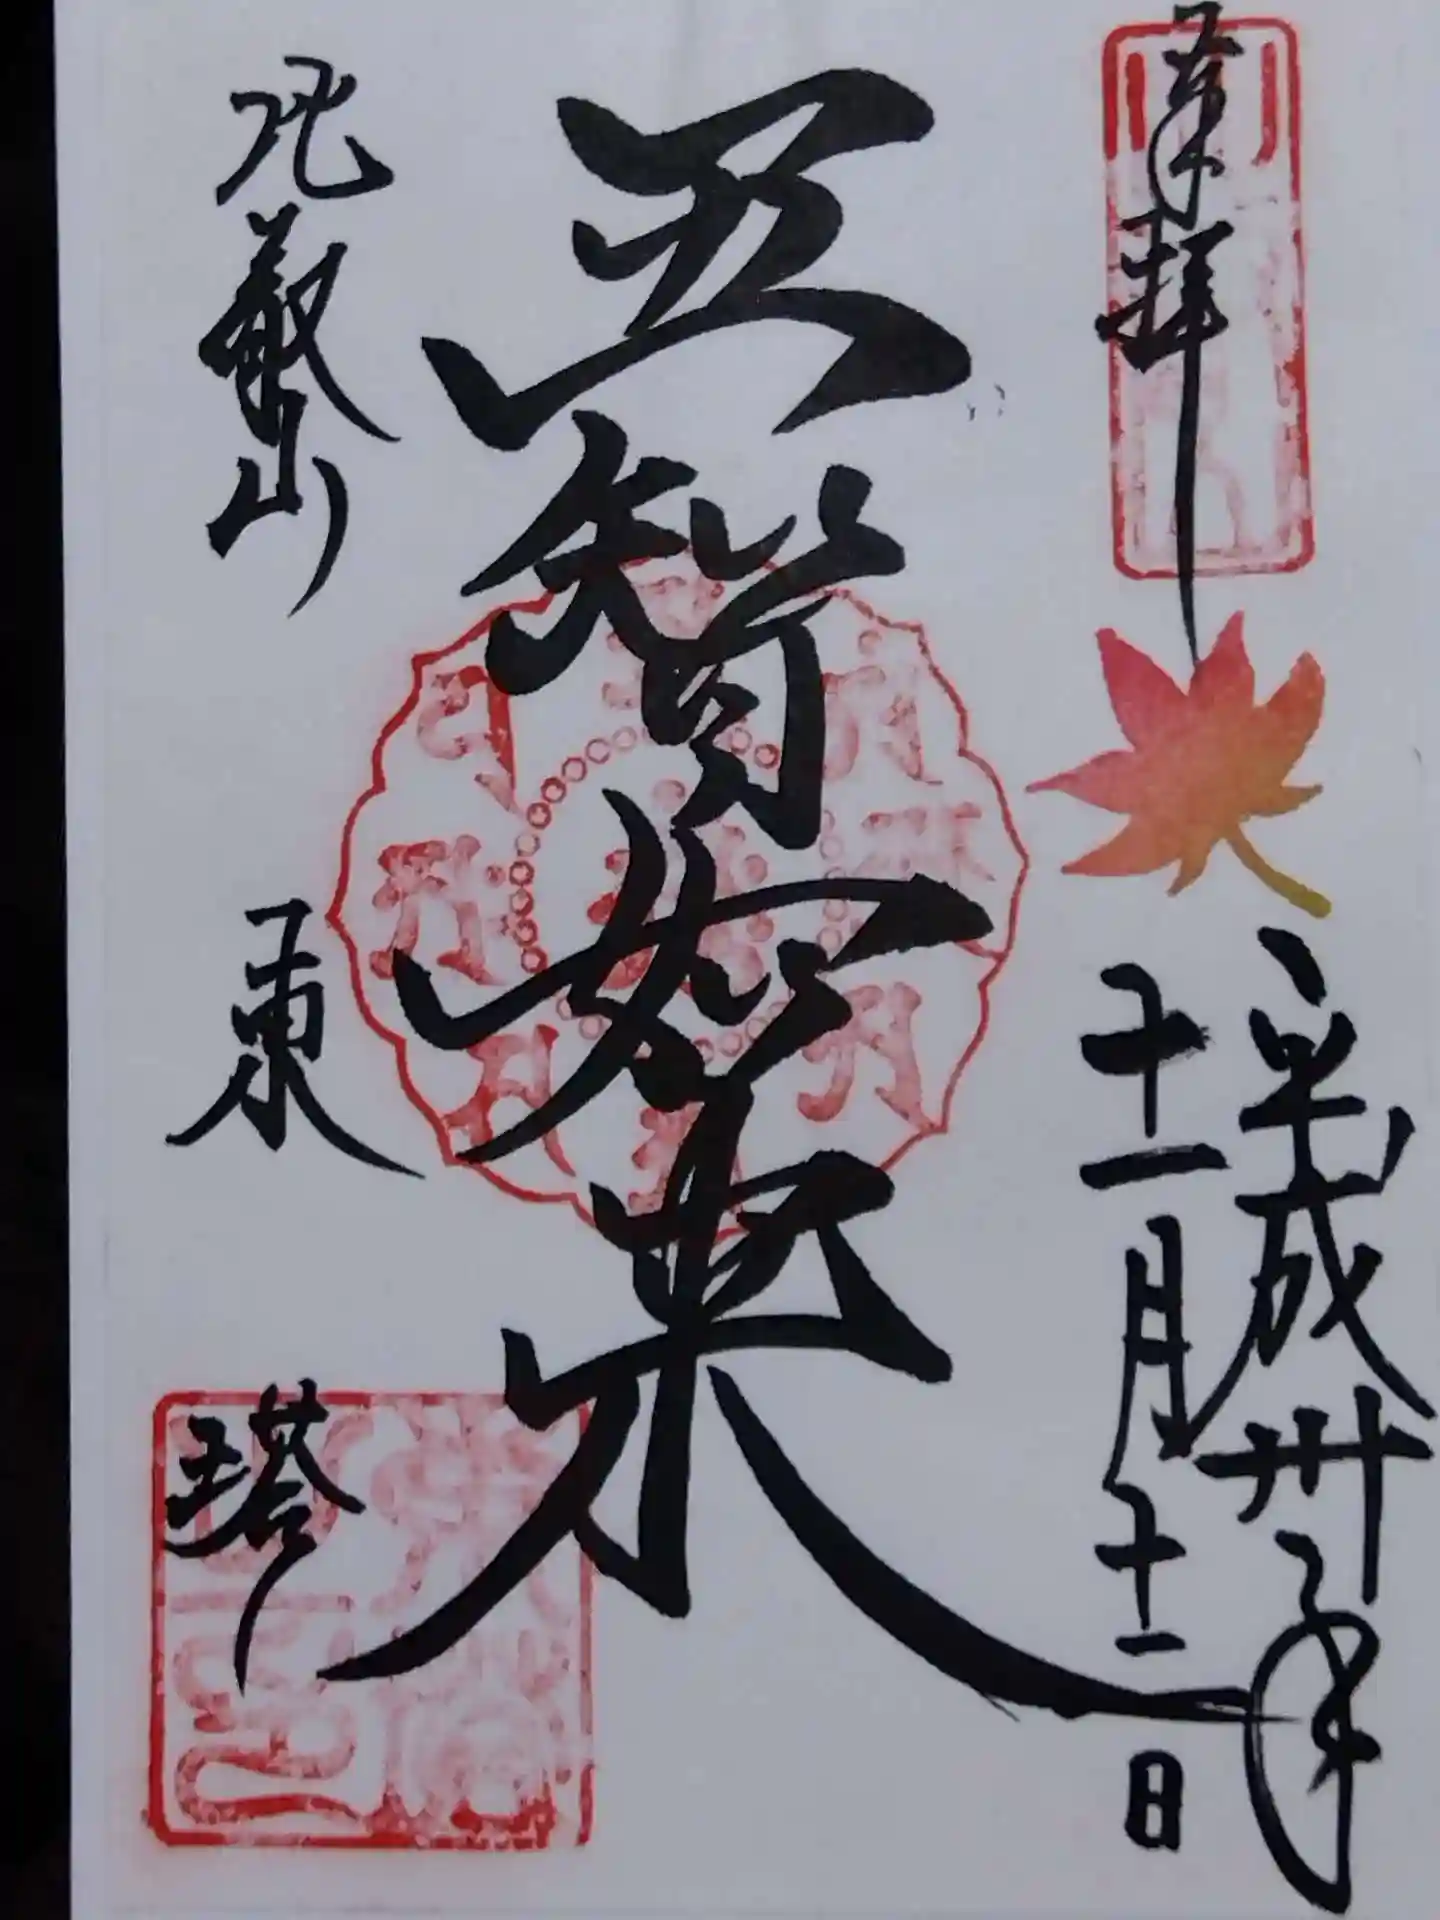 奉拝
平成卅年
十一月十二日
五智如来
比叡山 東塔